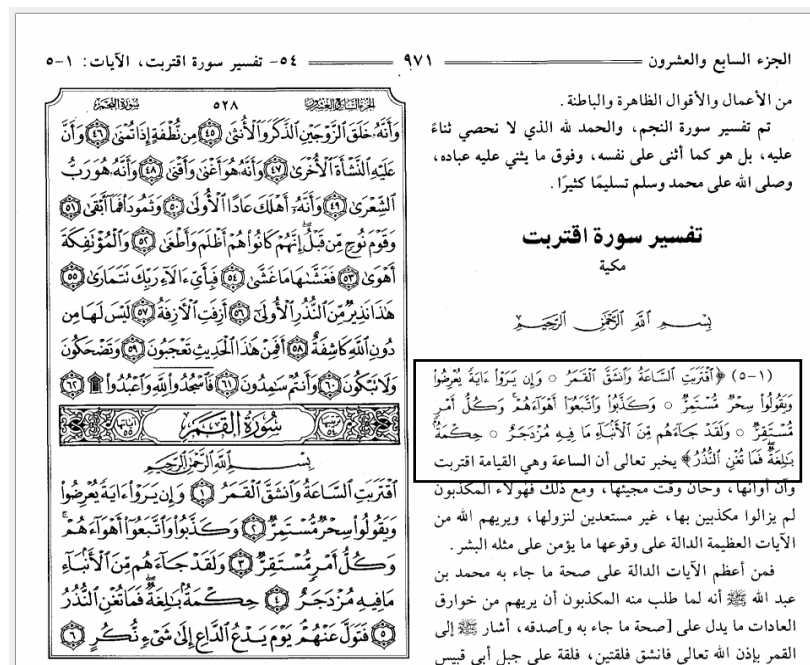 الجزء السابع والعشرون
٩٧١
٥٤- تفسير سورة اقتربت، الآيات: ١-٥
من الأعمال والأقوال الظاهرة والباطنة.
تم تفسير سورة النجم، والحمد لله الذي لا نحصي ثناءً
عليه، بل هو كما أثنى على نفسه، وفوق ما يثني عليه عباده،
وصلى الله على محمد وسلم تسليمًا كثيرًا.
تفسير سورة اقتربت
مكية
بِسْمِ اللَّهِ الرَّحْمَٰنِ الرَّحِيمِ
(١-٥) ﴿ٱقْتَرَبَتِ ٱلسَّاعَةُ وَٱنشَقَّ ٱلْقَمَرُ ○ وَإِن يَرَوْا۟ ءَايَةً يُعْرِضُوا۟
وَيَقُولُوا۟ سِحْرٌ مُّسْتَمِرٌّ ○ وَكَذَّبُوا۟ وَٱتَّبَعُوٓا۟ أَهْوَآءَهُمْ ۚ وَكُلُّ أَمْرٍ
مُّسْتَقِرٌّ ○ وَلَقَدْ جَآءَهُم مِّنَ ٱلْأَنۢبَآءِ مَا فِيهِ مُزْدَجَرٌ ○ حِكْمَةٌۢ
بَـٰلِغَةٌ ۖ فَمَا تُغْنِ ٱلنُّذُرُ﴾ يخبر تعالى أن الساعة وهي القيامة اقتربت
وآن أوانها، وحان وقت مجيئها، ومع ذلك فهؤلاء المكذبون
لم يزالوا مكذبين بها، غير مستعدين لنزولها، ويريهم الله من
الآيات العظيمة الدالة على وقوعها ما يؤمن على مثله البشر.
فمن أعظم الآيات الدالة على صحة ما جاء به محمد بن
عبد الله ﷺ أنه لما طلب منه المكذبون أن يريهم من خوارق
العادات ما يدل على [صحة ما جاء به و]صدقه، أشار ﷺ إلى
القمر بإذن الله تعالى فانشق فلقتين، فلقة على جبل أبي قبيس
الجزء السابع والعشرون
٥٢٨
سورة النجم
وَأَنَّهُۥ خَلَقَ ٱلزَّوْجَيْنِ ٱلذَّكَرَ وَٱلْأُنثَىٰ ٤٥ مِن نُّطْفَةٍ إِذَا تُمْنَىٰ ٤٦ وَأَنَّ
عَلَيْهِ ٱلنَّشْأَةَ ٱلْأُخْرَىٰ ٤٧ وَأَنَّهُۥ هُوَ أَغْنَىٰ وَأَقْنَىٰ ٤٨ وَأَنَّهُۥ هُوَ رَبُّ
ٱلشِّعْرَىٰ ٤٩ وَأَنَّهُۥٓ أَهْلَكَ عَادًا ٱلْأُولَىٰ ٥٠ وَثَمُودَا۟ فَمَآ أَبْقَىٰ ٥١
وَقَوْمَ نُوحٍ مِّن قَبْلُ ۖ إِنَّهُمْ كَانُوا۟ هُمْ أَظْلَمَ وَأَطْغَىٰ ٥٢ وَٱلْمُؤْتَفِكَةَ
أَهْوَىٰ ٥٣ فَغَشَّىٰهَا مَا غَشَّىٰ ٥٤ فَبِأَىِّ ءَالَآءِ رَبِّكَ تَتَمَارَىٰ ٥٥
هَـٰذَا نَذِيرٌ مِّنَ ٱلنُّذُرِ ٱلْأُولَىٰٓ ٥٦ أَزِفَتِ ٱلْـَٔازِفَةُ ٥٧ لَيْسَ لَهَا مِن
دُونِ ٱللَّهِ كَاشِفَةٌ ٥٨ أَفَمِنْ هَـٰذَا ٱلْحَدِيثِ تَعْجَبُونَ ٥٩ وَتَضْحَكُونَ
وَلَا تَبْكُونَ ٦٠ وَأَنتُمْ سَـٰمِدُونَ ٦١ فَٱسْجُدُوا۟ لِلَّهِ وَٱعْبُدُوا۟ ۩ ٦٢
ترتيبها ٥٤
سُورَةُ ٱلْقَمَرِ
آياتها ٥٥
بِسْمِ ٱللَّهِ ٱلرَّحْمَـٰنِ ٱلرَّحِيمِ
ٱقْتَرَبَتِ ٱلسَّاعَةُ وَٱنشَقَّ ٱلْقَمَرُ ١ وَإِن يَرَوْا۟ ءَايَةً يُعْرِضُوا۟
وَيَقُولُوا۟ سِحْرٌ مُّسْتَمِرٌّ ٢ وَكَذَّبُوا۟ وَٱتَّبَعُوٓا۟ أَهْوَآءَهُمْ ۚ
وَكُلُّ أَمْرٍ مُّسْتَقِرٌّ ٣ وَلَقَدْ جَآءَهُم مِّنَ ٱلْأَنۢبَآءِ
مَا فِيهِ مُزْدَجَرٌ ٤ حِكْمَةٌۢ بَـٰلِغَةٌ ۖ فَمَا تُغْنِ ٱلنُّذُرُ
٥ فَتَوَلَّ عَنْهُمْ ۘ يَوْمَ يَدْعُ ٱلدَّاعِ إِلَىٰ شَىْءٍ نُّكُرٍ ٦